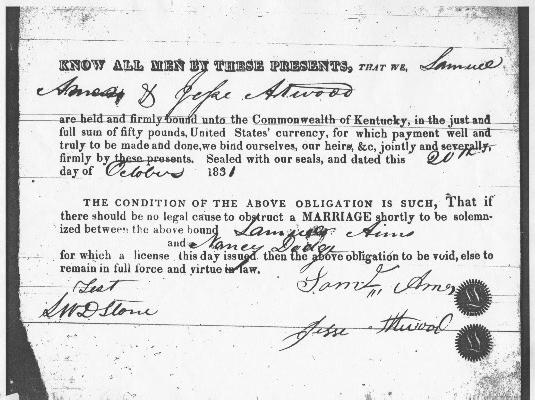 KNOW ALL MEN BY THESE PRESENTS, THAT WE, Samuel
Ames & Jesse Atwood
are held and firmly bound unto the Commonwealth of Kentucky, in the just and
full sum of fifty pounds, United States' currency, for which payment well and
truly to be made and done, we bind ourselves, our heirs, &c, jointly and severally,
firmly by these presents. Sealed with our seals, and dated this 20th
day of October 1831
THE CONDITION OF THE ABOVE OBLIGATION IS SUCH, That if
there should be no legal cause to obstruct a MARRIAGE shortly to be solemn-
ized between the above bound Samuel Aims
and Nancy
for which a license this day issued then the above obligation to be void, else to
remain in full force and virtue in law.
Test
SWD Stone
Saml Ames
Jesse Atwood